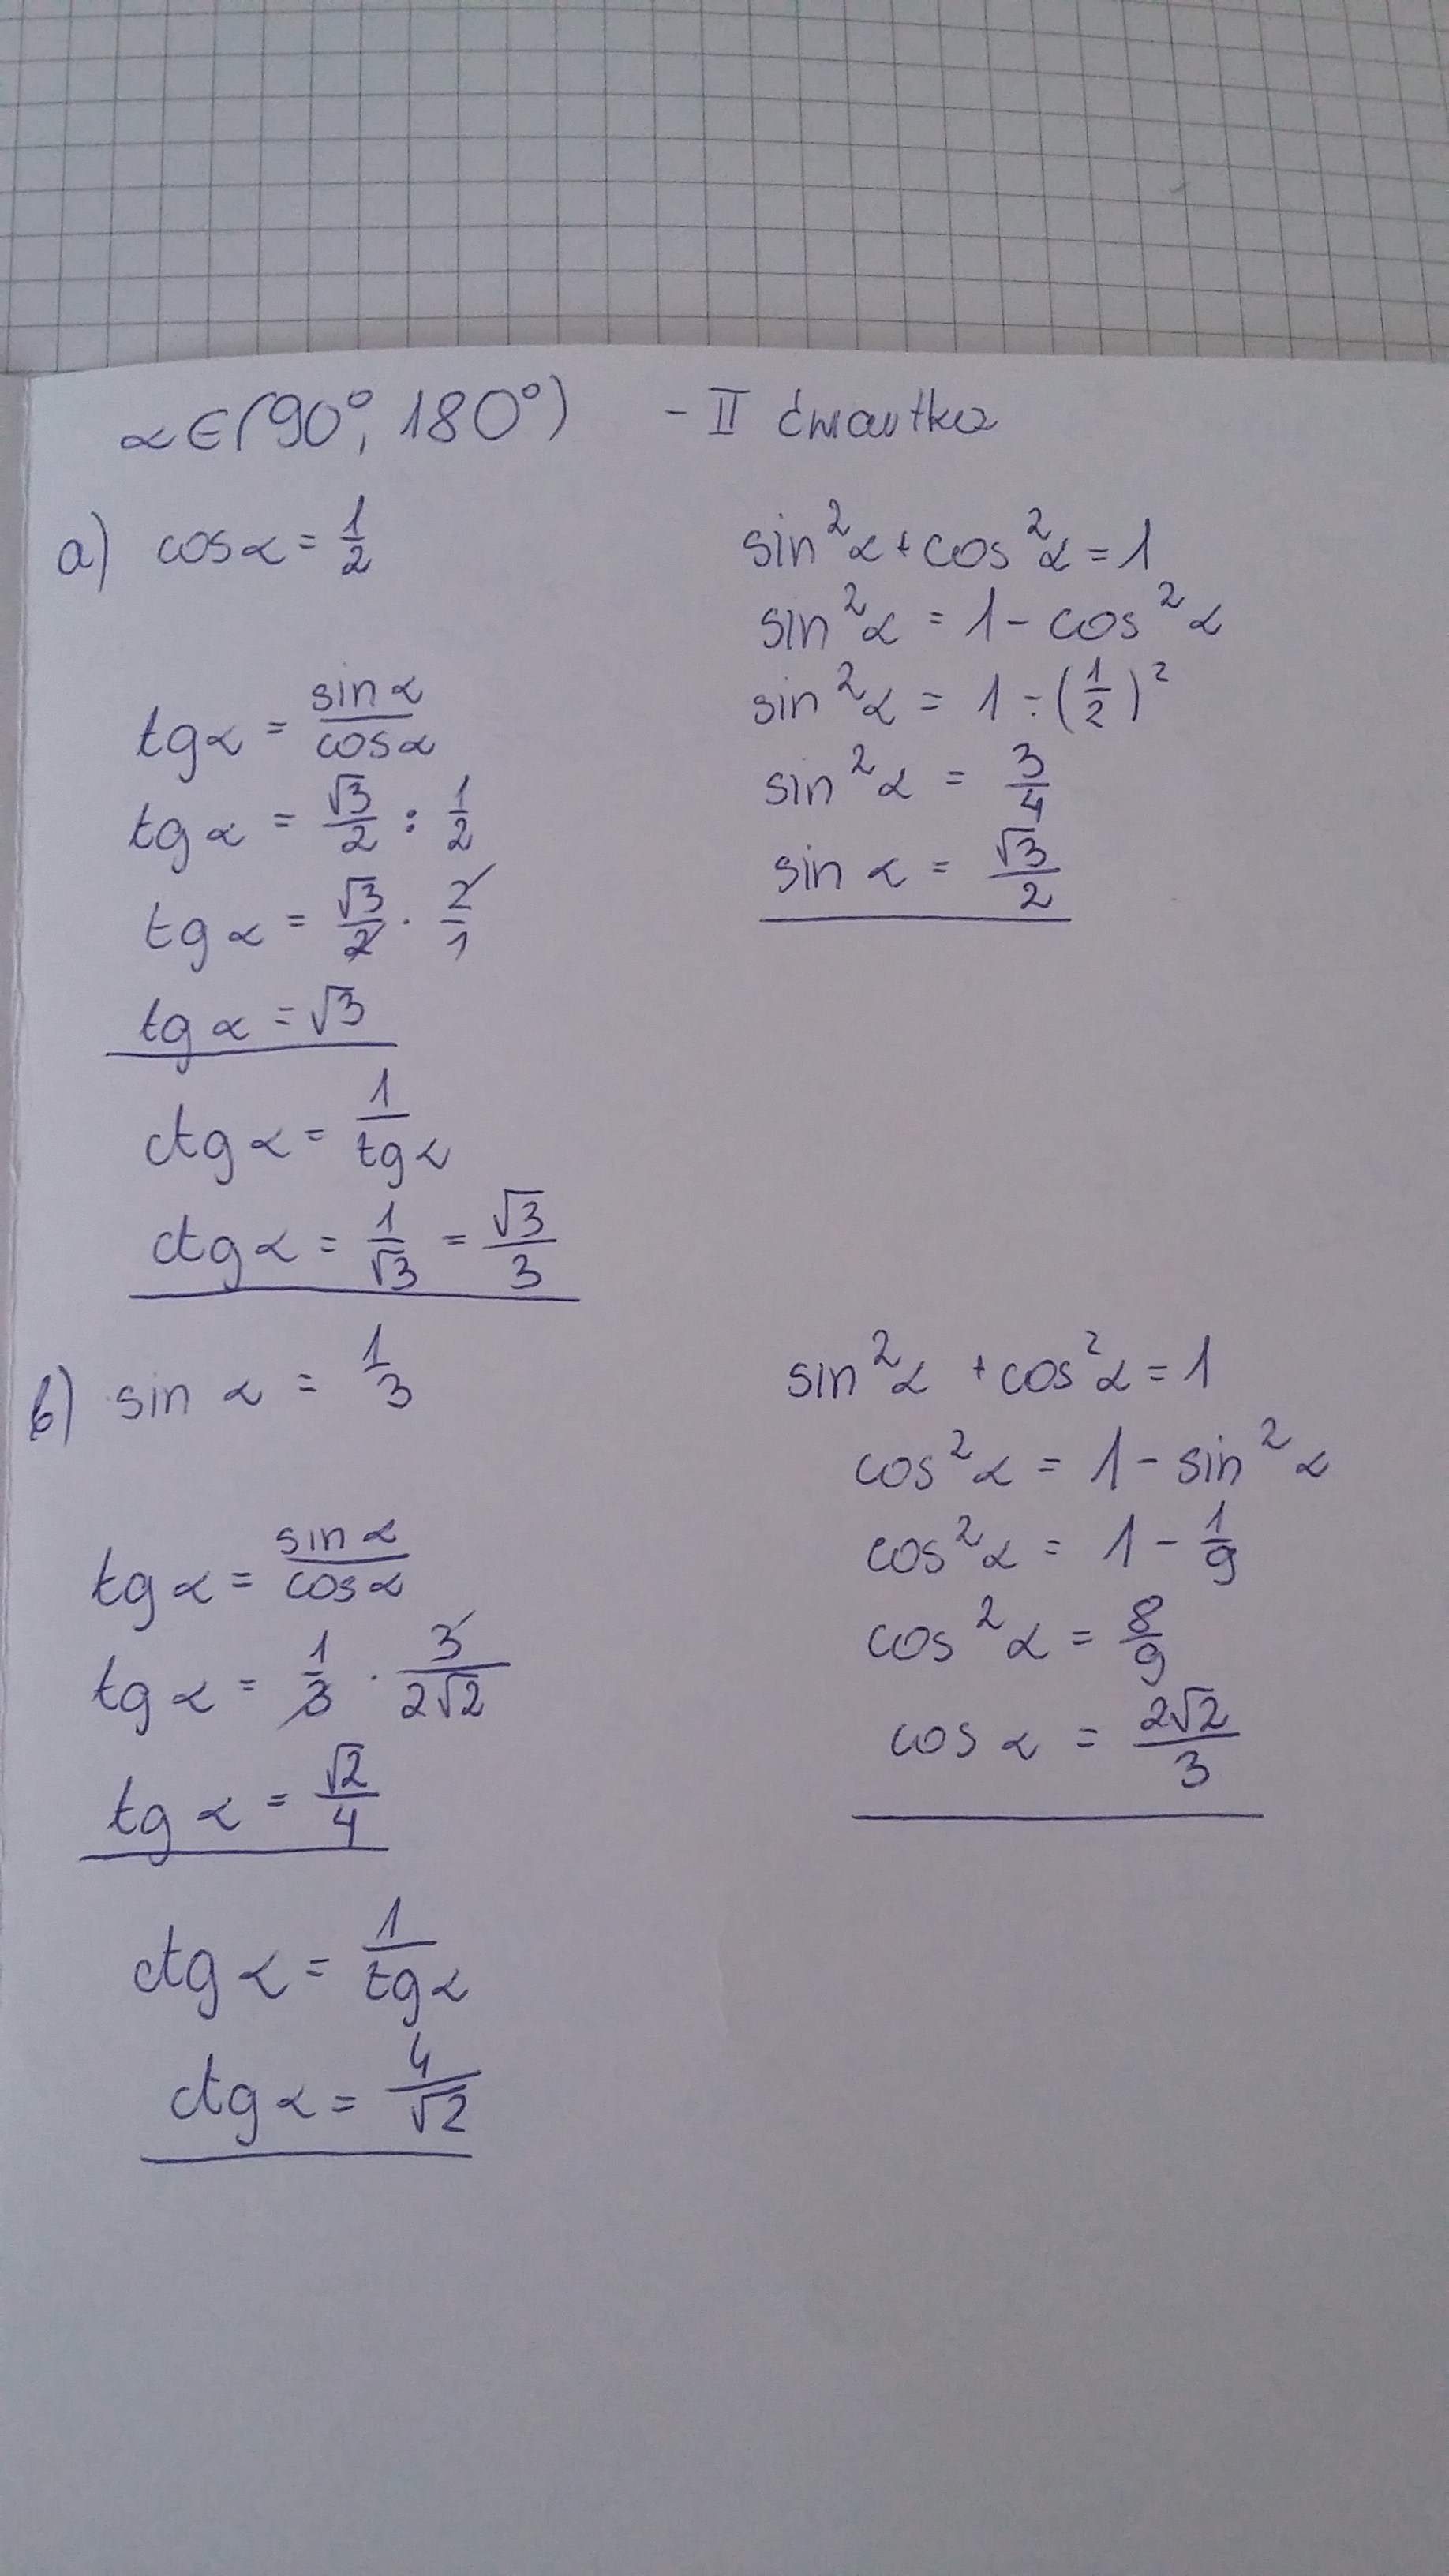 α∈(90°, 180°) - II ćwiartka
a) cosα = 1/2
sin²α + cos²α = 1
sin²α = 1 - cos²α
sin²α = 1 - (1/2)²
sin²α = 3/4
sin α = √3/2
tgα = sinα/cosα
tgα = √3/2 : 1/2
tgα = √3/2 · 2/1
tgα = √3
ctgα = 1/tgα
ctgα = 1/√3 = √3/3
b) sin α = 1/3
sin²α + cos²α = 1
cos²α = 1 - sin²α
cos²α = 1 - 1/9
cos²α = 8/9
cos α = 2√2/3
tgα = sinα/cosα
tgα = 1/3 · 3/2√2
tgα = √2/4
ctgα = 1/tgα
ctgα = 4/√2